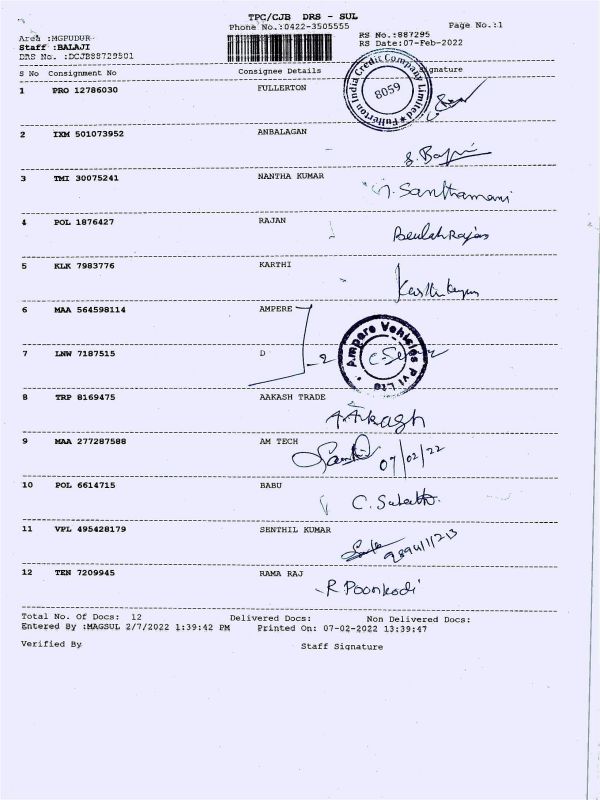 TPC/CJB DRS - SUL
Phone No.:0422-3505555 Page No.:1
Area :MGPUDUR RS No.:887295
Staff :BALAJI RS Date:07-Feb-2022
DRS No. :DCJB88729501
S No Consignment No Consignee Details Signature
1 PRO 12786030 FULLERTON
Fullerton India Credit Company Limited
8059
2 IXM 501073952 ANBALAGAN
3 TMI 30075241 NANTHA KUMAR
Santhamani
4 POL 1876427 RAJAN
BeulahRajan
5 KLK 7983776 KARTHI
6 MAA 564598114 AMPERE
Ampere Vehicles Pvt Ltd
7 LNW 7187515 D
2
8 TRP 8169475 AAKASH TRADE
A.Aakash
9 MAA 277287588 AM TECH
07/02/22
10 POL 6614715 BABU
11 VPL 495428179 SENTHIL KUMAR
12 TEN 7209945 RAMA RAJ
R Poonkodi
Total No. Of Docs: 12 Delivered Docs: Non Delivered Docs:
Entered By :MAGSUL 2/7/2022 1:39:42 PM Printed On: 07-02-2022 13:39:47
Verified By Staff Signature